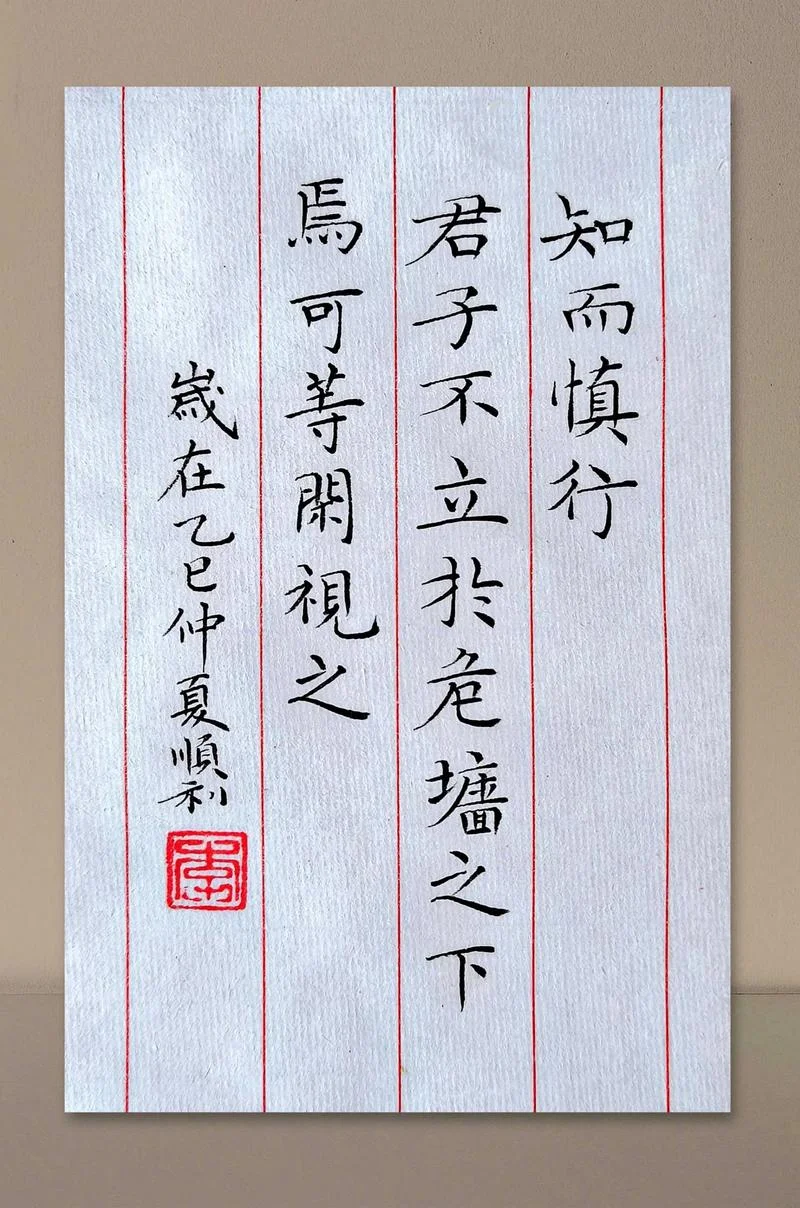 知而慎行
君子不立於危墻之下
焉可等閑視之
歲在乙巳仲夏順利